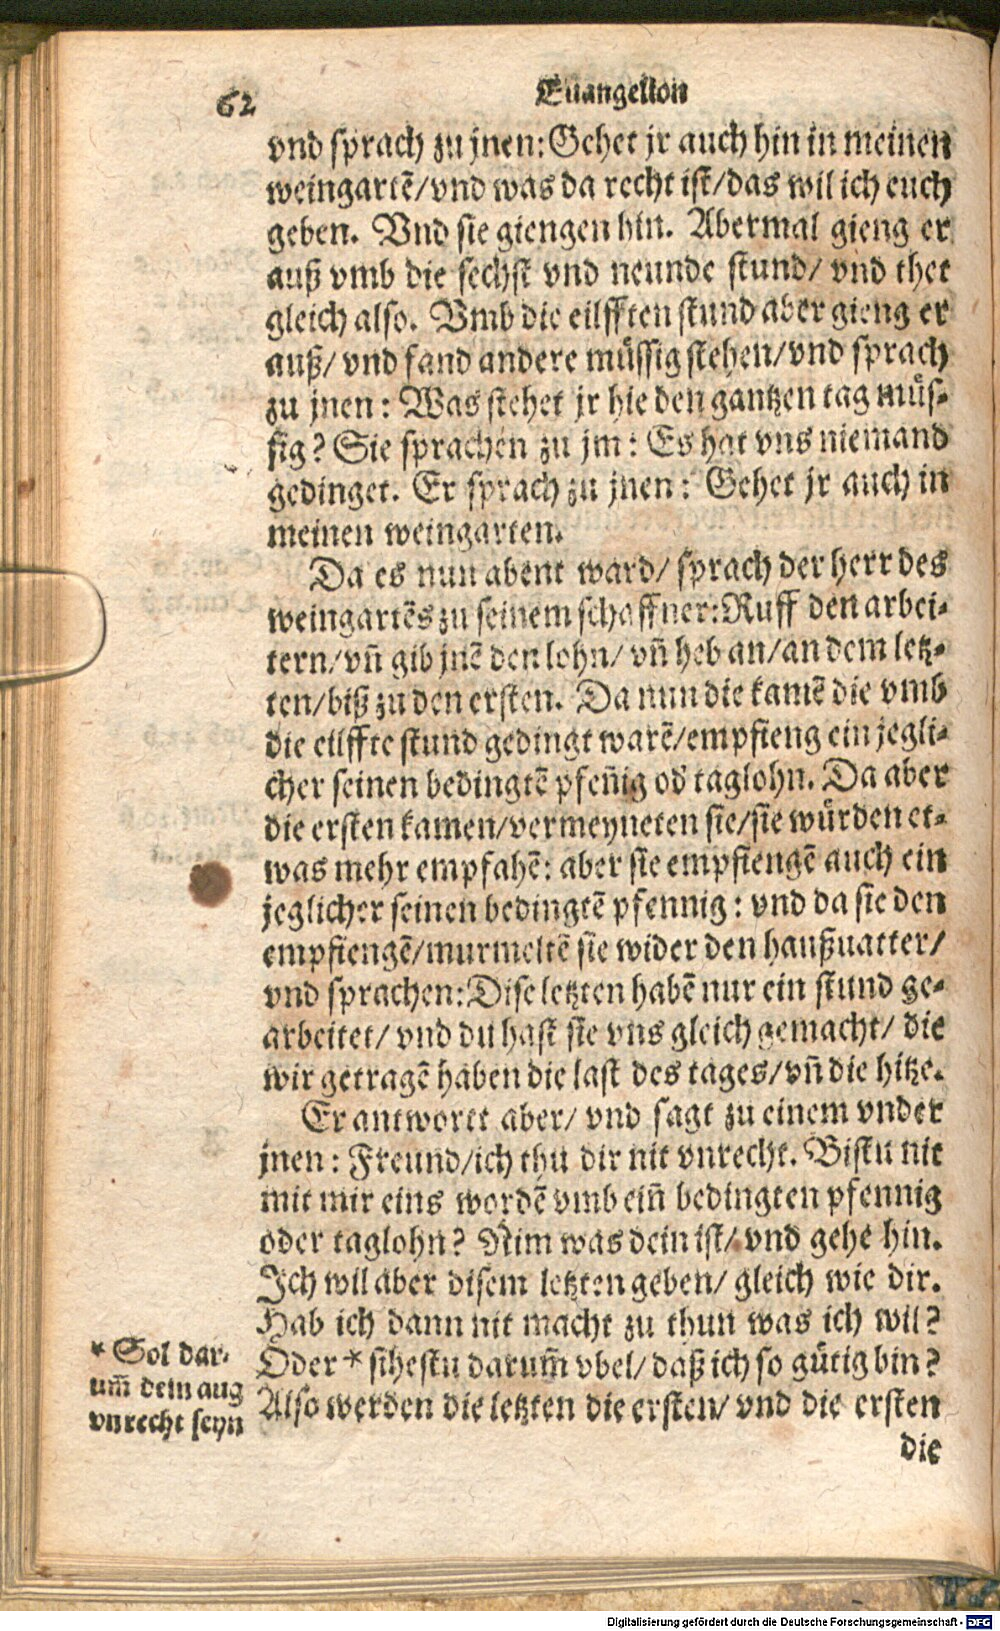 62
Euangelion
vnd sprach zu jnen: Gehet jr auch hin in meinen
weingartē/ vnd was da recht ist/ das wil ich euch
geben. Vnd sie giengen hin. Abermal gieng er
auß vmb die sechst vnd neunde stund/ vnd thet
gleich also. Vmb die eilfften stund aber gieng er
auß/ vnd fand andere müssig stehen/ vnd sprach
zu jnen: Was stehet jr hie den gantzen tag müs-
sig? Sie sprachen zu jm: Es hat vns niemand
gedinget. Er sprach zu jnen: Gehet jr auch in
meinen weingarten.
Da es nun abent ward/ sprach der herr des
weingartēs zu seinem schaffner: Ruff den arbei-
tern/ vn̄ gib jnē den lohn/ vn̄ heb an/ an dem letz-
ten/ biß zu den ersten. Da nun die kamē die vmb
die eilffte stund gedingt warē/ empfieng ein jegli-
cher seinen bedingtē pfen̄ig od taglohn. Da aber
die ersten kamen/ vermeyneten sie/ sie würden et-
was mehr empfahē: aber sie empfiengē auch ein
jeglicher seinen bedingtē pfennig: vnd da sie den
empfiengē/ murmeltē sie wider den haußuatter/
vnd sprachen: Dise letzten habē nur ein stund ge-
arbeitet/ vnd du hast sie vns gleich gemacht/ die
wir getragē haben die last des tages/ vn̄ die hitze.
Er antwortt aber/ vnd sagt zu einem vnder
jnen: Freund/ ich thu dir nit vnrecht. Bistu nit
mit mir eins wordē vmb ein̄ bedingten pfennig
oder taglohn? Nim was dein ist/ vnd gehe hin.
Ich wil aber disem letzten geben/ gleich wie dir.
Hab ich dann nit macht zu thun was ich wil?
Oder * sihestu darum̄ vbel/ daß ich so gütig bin?
Also werden die letzten die ersten/ vnd die ersten
die
* Sol dar-
um̄ dein aug
vnrecht seyn
Digitalisierung gefördert durch die Deutsche Forschungsgemeinschaft - DFG